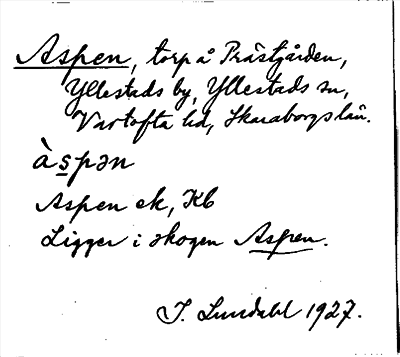 Aspen, torp å Prästgården,
Yllestads by, Yllestads sn,
Vartofta hd, Skaraborgs län.
àspən
Aspen ek, Kb
Ligger i skogen Aspen.
J. Lundahl 1927.